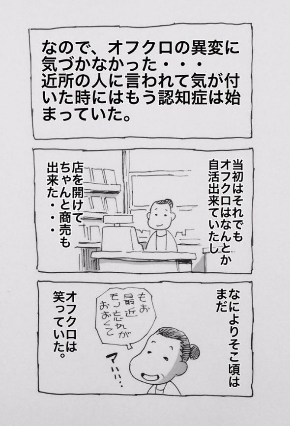 なので、オフクロの異変に
気づかなかった・・・
近所の人に言われて気が付
いた時にはもう認知症は始
まっていた。
当初はそれでも
オフクロはなんとか
自活出来ていたし
店を開けて
ちゃんと商売も
出来た・・・
なによりそこ頃は
まだ
もぉ
最近
もの忘れが
おおくて
アハハ…
オフクロは
笑っていた。